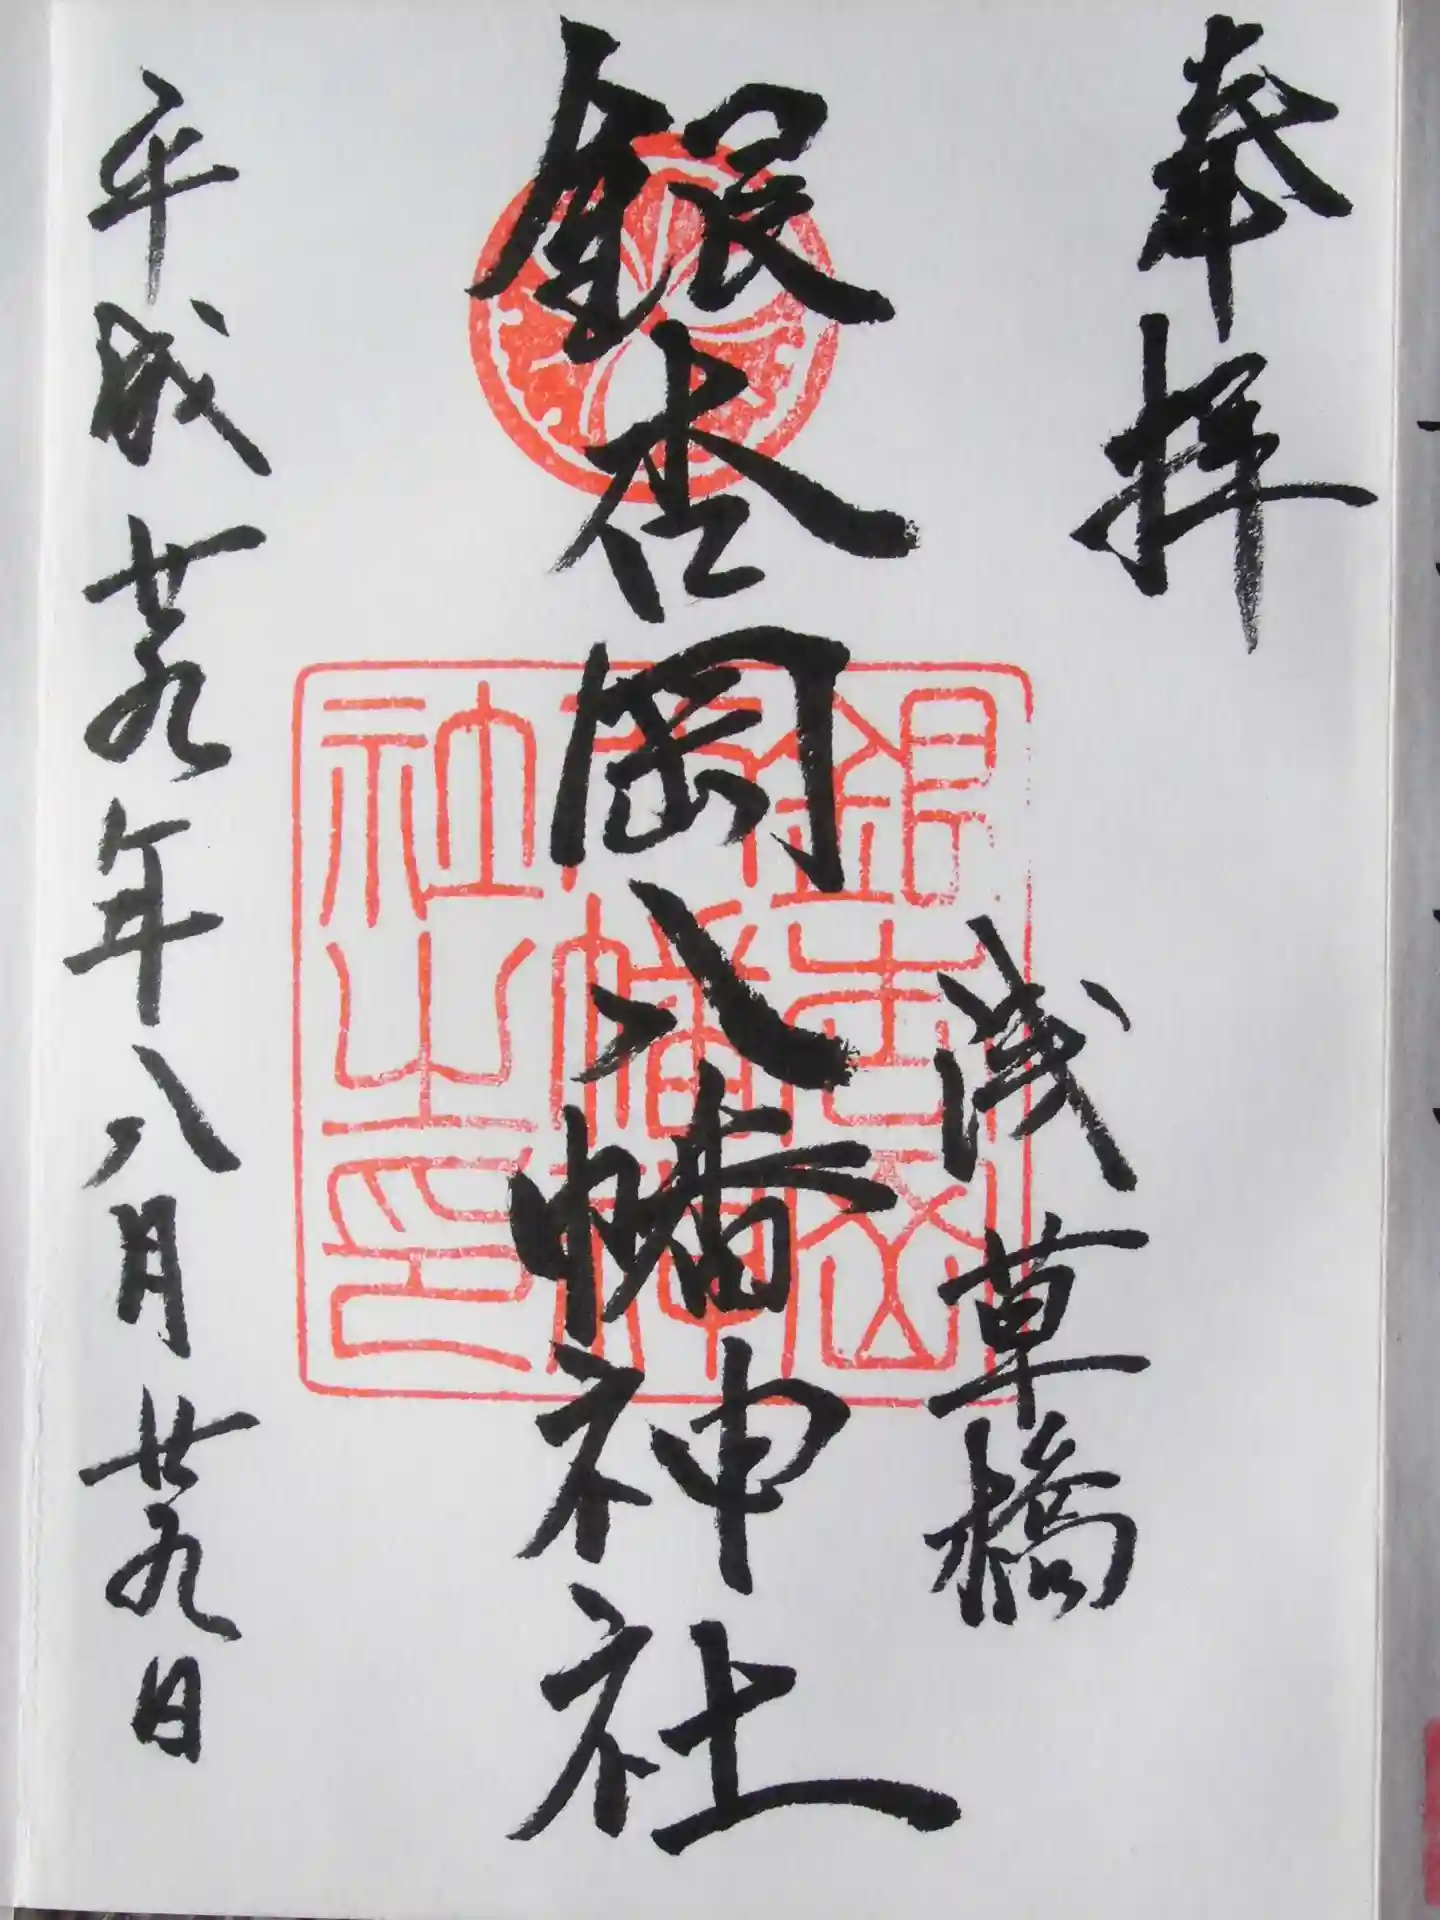 奉拝
浅草橋
銀杏岡八幡神社
平成廿九年八月廿九日
銀杏岡
八幡神
社之印